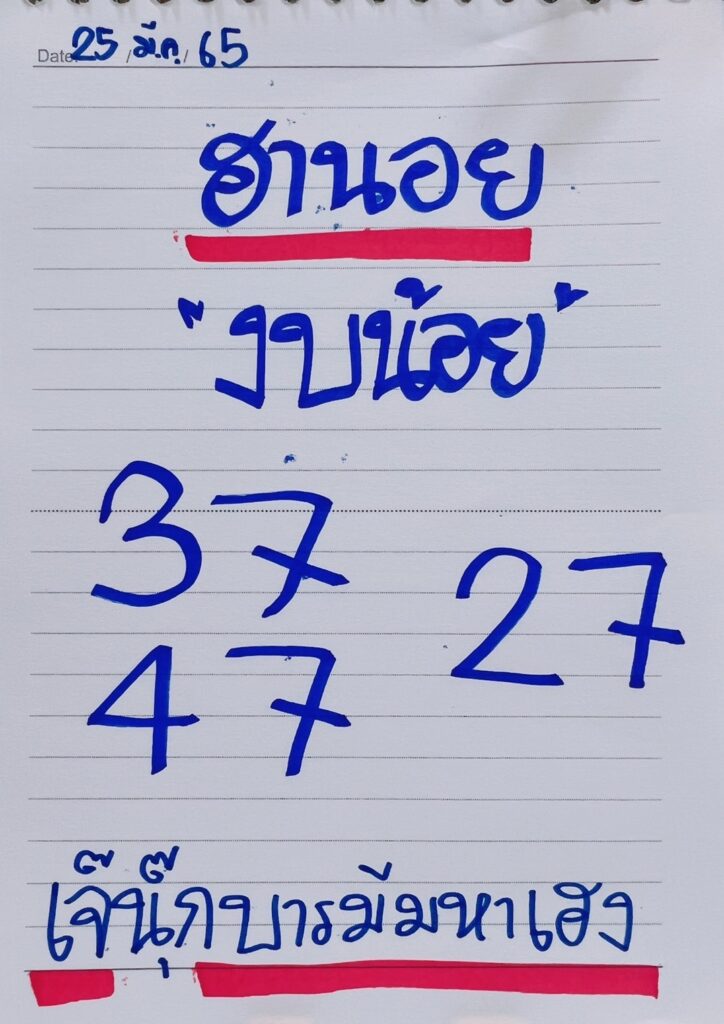 Date: 25 / มี.ค. / 65
ฮานอย
"งบน้อย"
37
27
47
เจ๊นุ๊กบารมีมหาเฮง